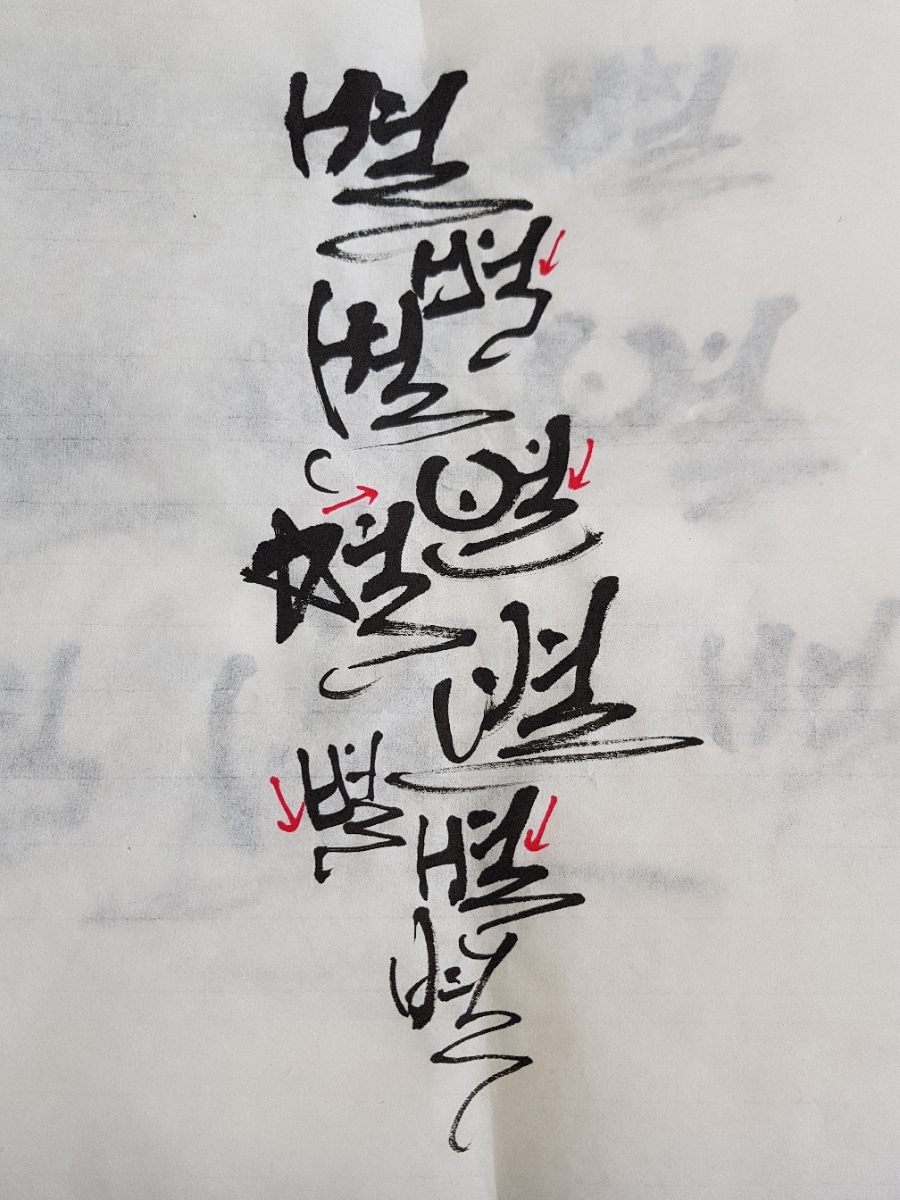 별
별
별
별
별
별
별
별
별